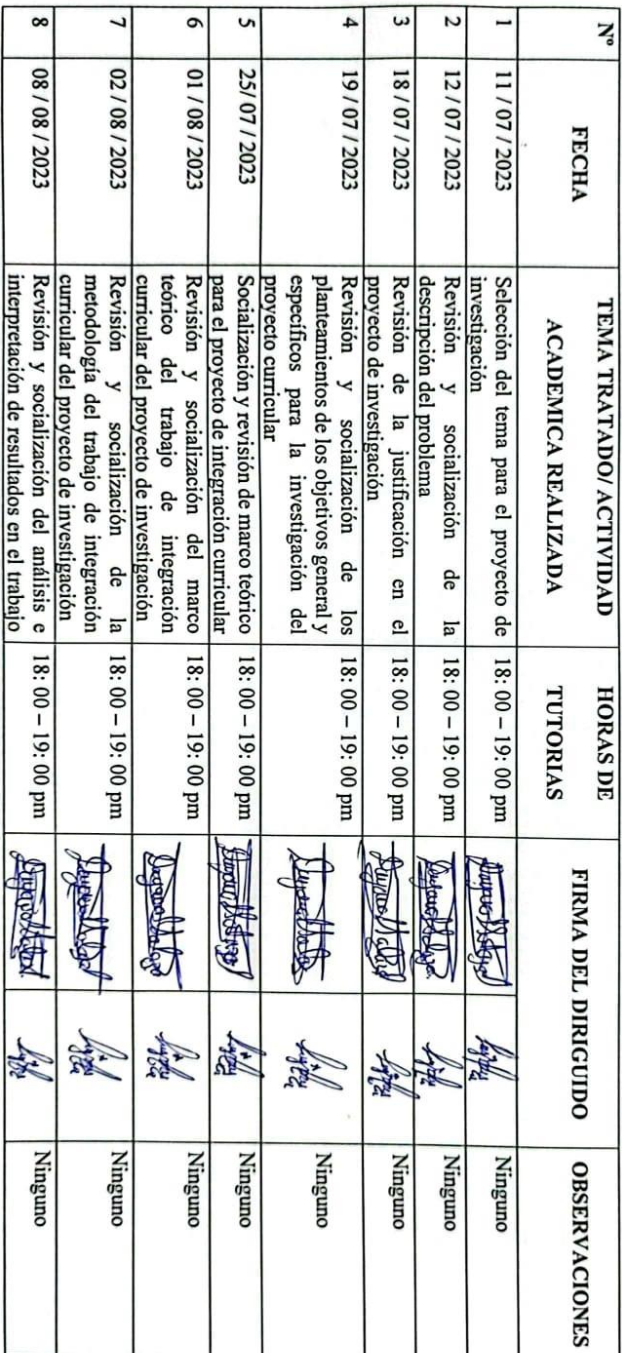 Nº FECHA TEMA TRATADO/ ACTIVIDAD ACADEMICA REALIZADA HORAS DE TUTORIAS FIRMA DEL DIRIGUIDO OBSERVACIONES
1 11 / 07 / 2023 Selección del tema para el proyecto de
investigación 18: 00 – 19: 00 pm Ninguno
2 12 / 07 / 2023 Revisión y socialización de la
descripción del problema 18: 00 – 19: 00 pm Ninguno
3 18 / 07 / 2023 Revisión de la justificación en el
proyecto de investigación 18: 00 – 19: 00 pm Ninguno
4 19 / 07 / 2023 Revisión y socialización de los
planteamientos de los objetivos general y
específicos para la investigación del
proyecto curricular 18: 00 – 19: 00 pm Ninguno
5 25/ 07 / 2023 Socialización y revisión de marco teórico
para el proyecto de integración curricular 18: 00 – 19: 00 pm Ninguno
6 01 / 08 / 2023 Revisión y socialización del marco
teórico del trabajo de integración
curricular del proyecto de investigación 18: 00 – 19: 00 pm Ninguno
7 02 / 08 / 2023 Revisión y socialización de la
metodología del trabajo de integración
curricular del proyecto de investigación 18: 00 – 19: 00 pm Ninguno
8 08 / 08 / 2023 Revisión y socialización del análisis e
interpretación de resultados en el trabajo 18: 00 – 19: 00 pm Ninguno